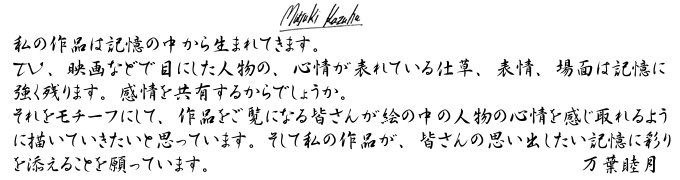 Mutsuki Kazuha
私の作品は記憶の中から生まれてきます。
TV、映画などで目にした人物の、心情が表れている仕草、表情、場面は記憶に
強く残ります。感情を共有するからでしょうか。
それをモチーフにして、作品をご覧になる皆さんが絵の中の人物の心情を感じ取れるよう
に描いていきたいと思っています。そして私の作品が、皆さんの思い出したい記憶に彩り
を添えることを願っています。 万葉睦月